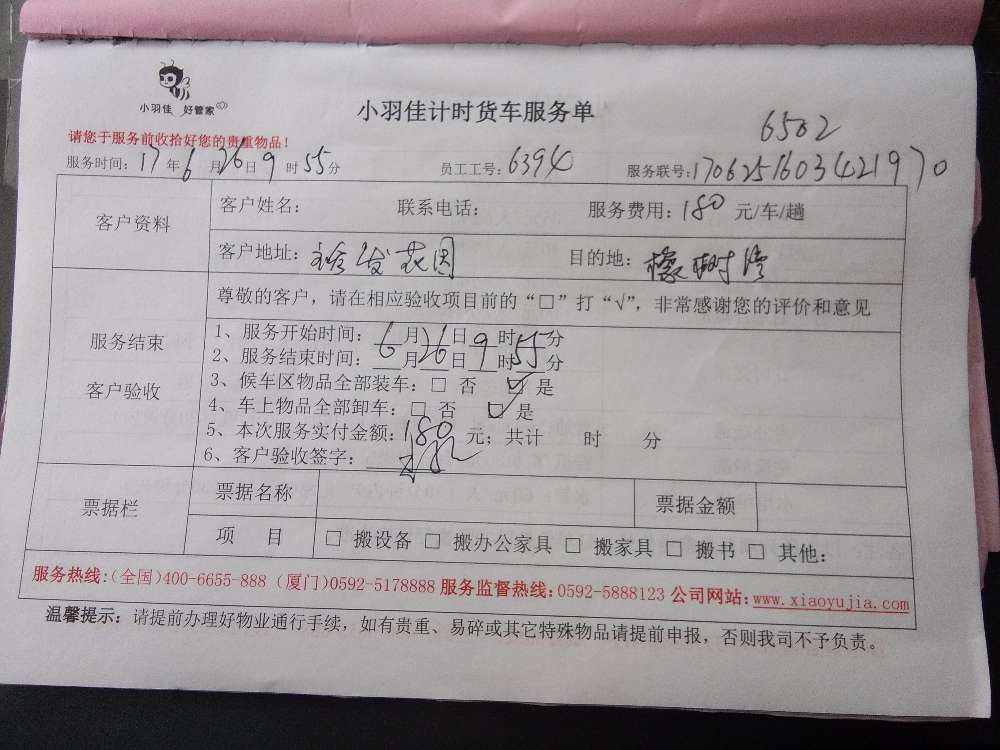 小羽佳 好管家
小羽佳计时货车服务单
6502
请您于服务前收拾好您的贵重物品！
服务时间：17年6月26日9时55分 员工工号：6394 服务联号：1706251603421970
客户资料
客户姓名： 联系电话： 服务费用：180 元/车/趟
客户地址：裕发花园 目的地：橡树湾
服务结束
客户验收
尊敬的客户，请在相应验收项目前的“□”打“√”，非常感谢您的评价和意见
1、服务开始时间：6月26日9时55分
2、服务结束时间：__月__日__时__分
3、候车区物品全部装车：□ 否 ☑ 是
4、车上物品全部卸车：□ 否 ☑ 是
5、本次服务实付金额：180 元；共计 时 分
6、客户验收签字：
票据栏
票据名称 票据金额
项 目 □ 搬设备 □ 搬办公家具 □ 搬家具 □ 搬书 □ 其他：
服务热线：(全国)400-6655-888 (厦门)0592-5178888 服务监督热线：0592-5888123 公司网站：www.xiaoyujia.com
温馨提示：请提前办理好物业通行手续，如有贵重、易碎或其它特殊物品请提前申报，否则我司不予负责。